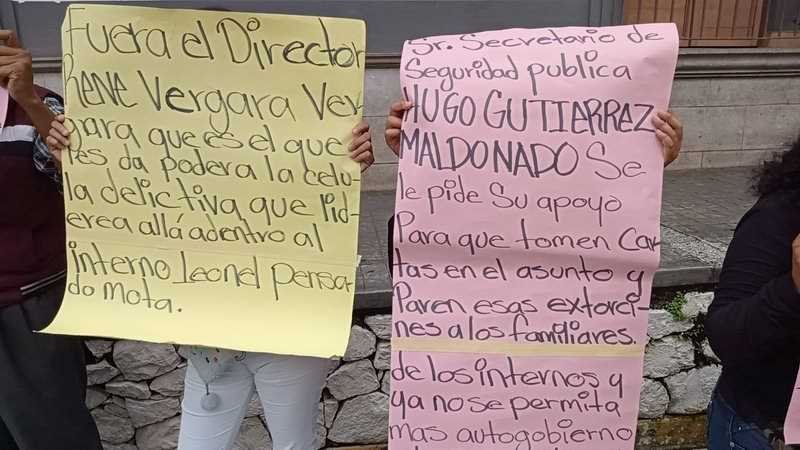 Fuera el Director
Rene Vergara Ver
gara que es el que
les da poder a la celu-
la delictiva que lid-
erea allá adentro al
interno Leonel pensa-
do Mota.
Sr. Secretario de
Seguridad publica
HUGO GUTIERREZ
MALDONADO Se
le pide Su apoyo
Para que tomen Car
tas en el asunto y
Paren esas extorci-
nes a los familiares.
de los internos y
ya no se permita
mas autogobierno